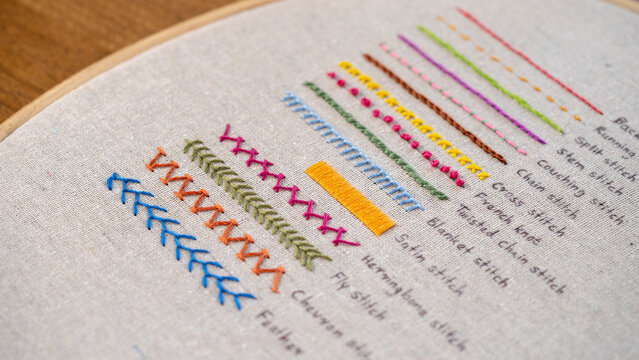 Running
Split stitch
Stem stitch
Couching stitch
Chain stitch
Cross stitch
French knot
Twisted chain stitch
Blanket stitch
Satin stitch
Herringbone stitch
Fly stitch
Chevron
Feather